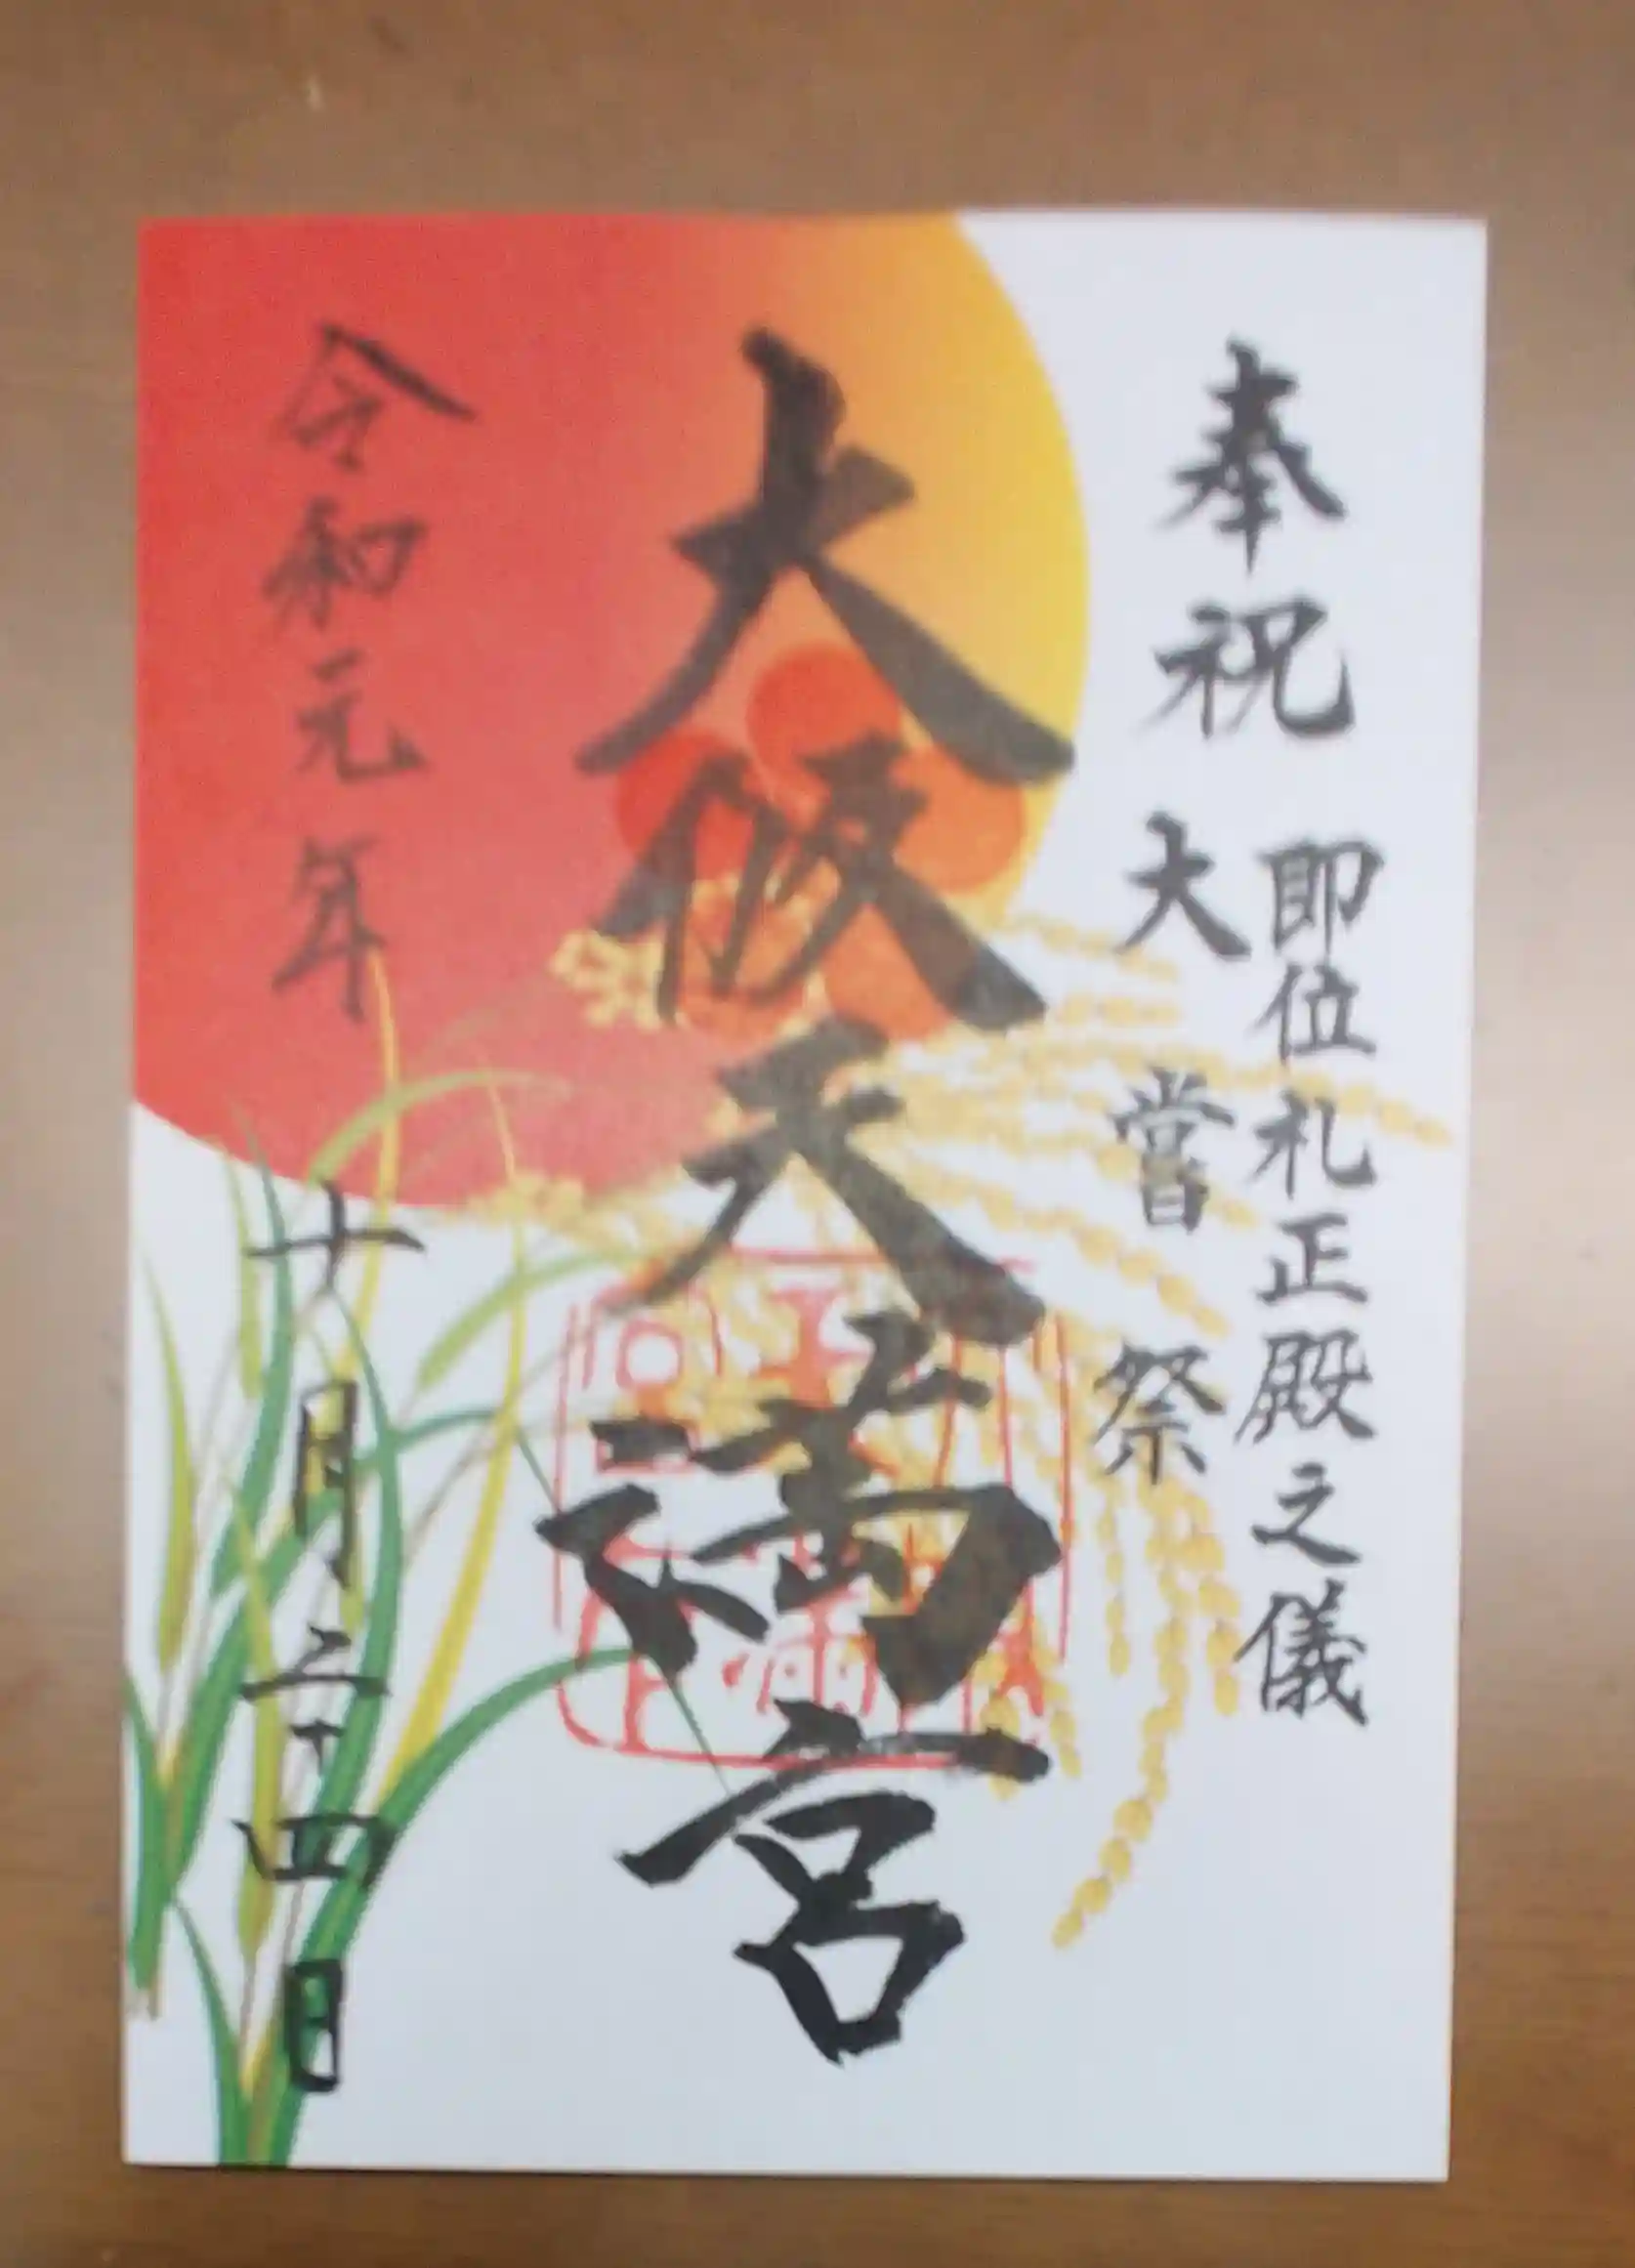 奉祝
即位礼正殿之儀
大嘗祭
大阪天満宮
令和元年
十月二十四日